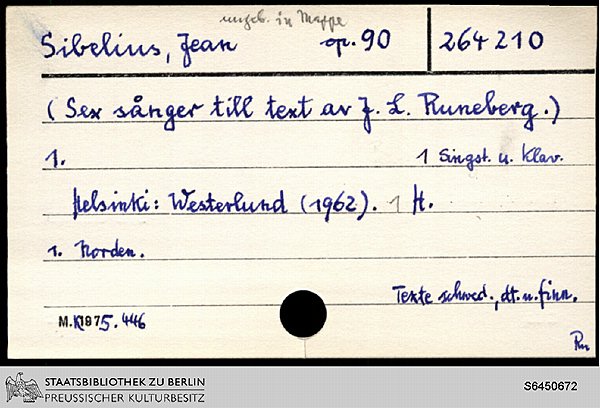 ungeb. in Mappe
Sibelius, Jean op. 90 264210
(Sex sånger till text av J. L. Runeberg.)
1. 1 Singst. u. Klav.
Helsinki: Westerlund (1962). 1 H.
1. Norden.
Texte schwed., dt. u. finn.
M.K1975.446
Rn
STAATSBIBLIOTHEK ZU BERLIN
PREUSSISCHER KULTURBESITZ
S6450672